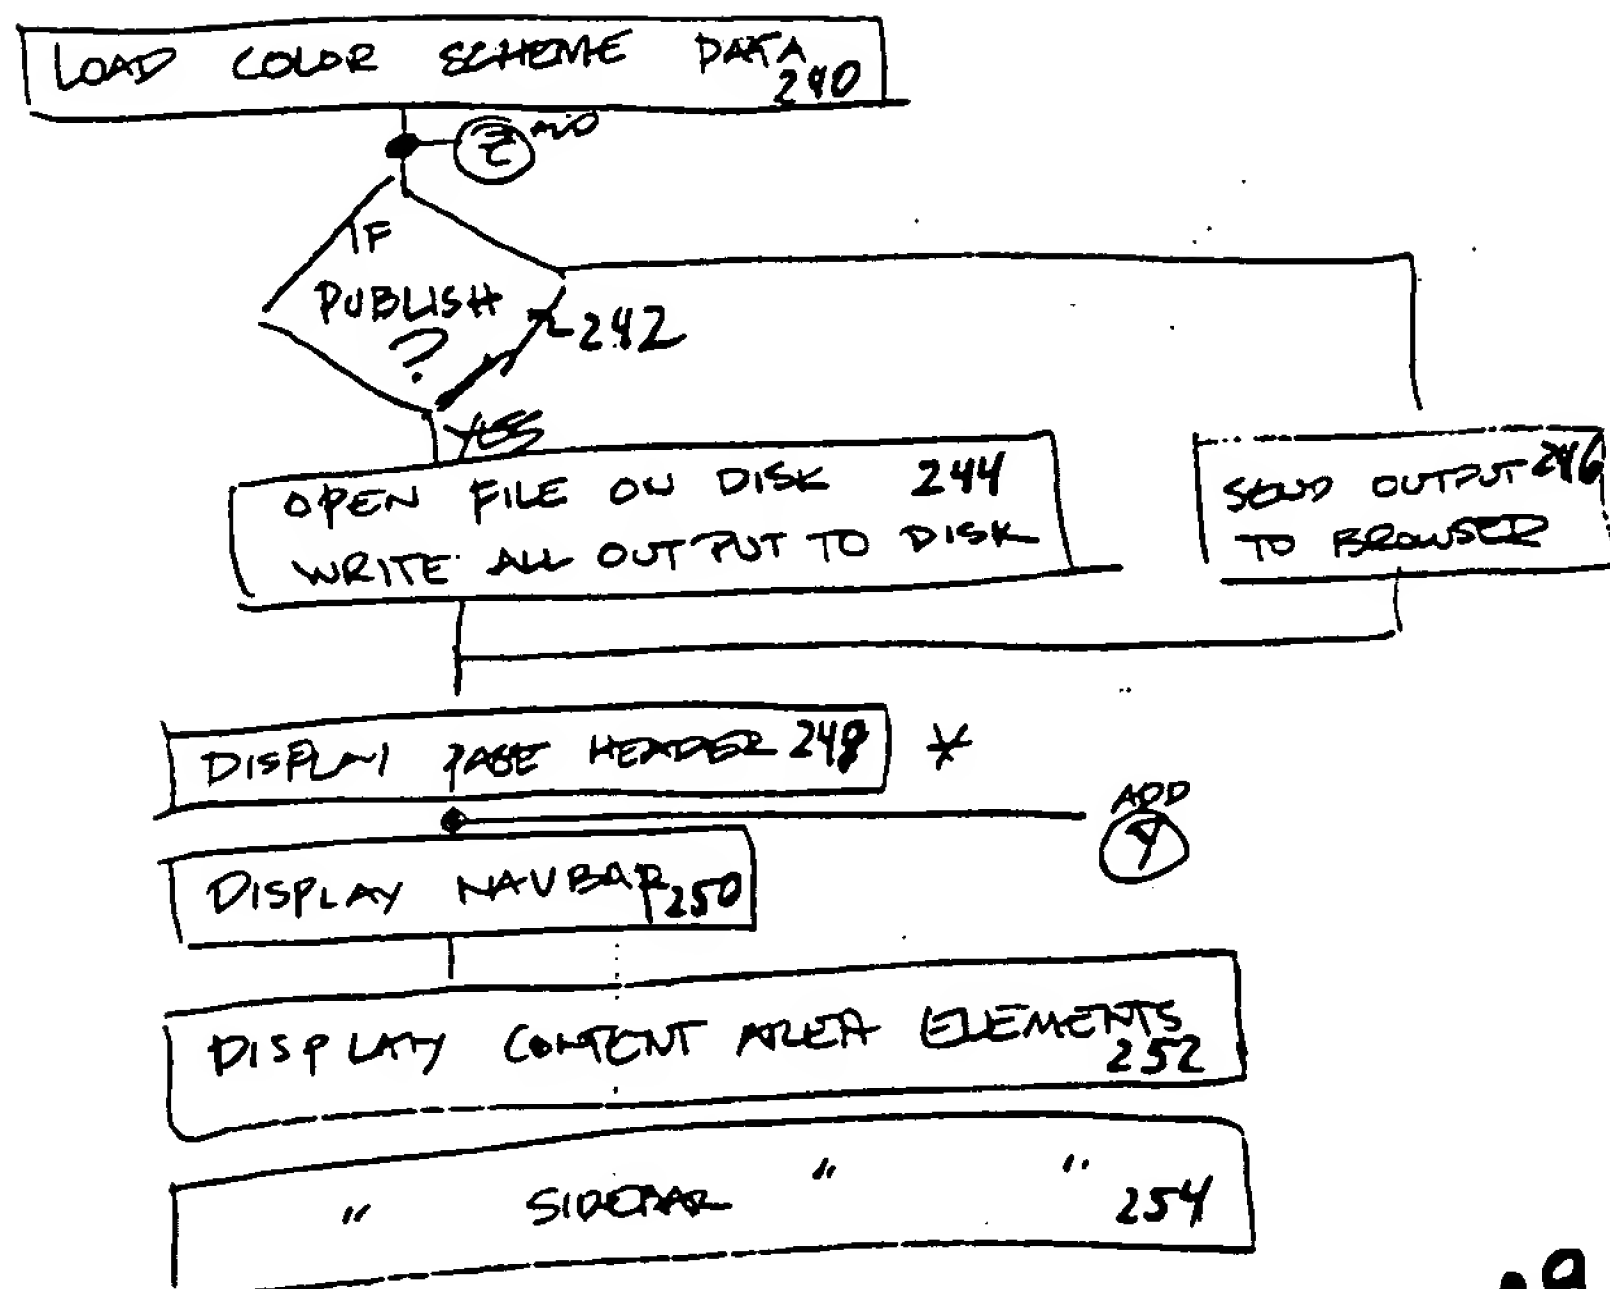 LOAD COLOR SCHEME DATA
240
IF
PUBLISH
?
242
YES
OPEN FILE ON DISK 244
WRITE ALL OUTPUT TO DISK
SEND OUTPUT 246
TO BROWSER
DISPLAY PAGE HEADER 248 *
ADD
Y
DISPLAY NAVBAR 250
DISPLAY CONTENT AREA ELEMENTS
252
" SIDEBAR " "
254